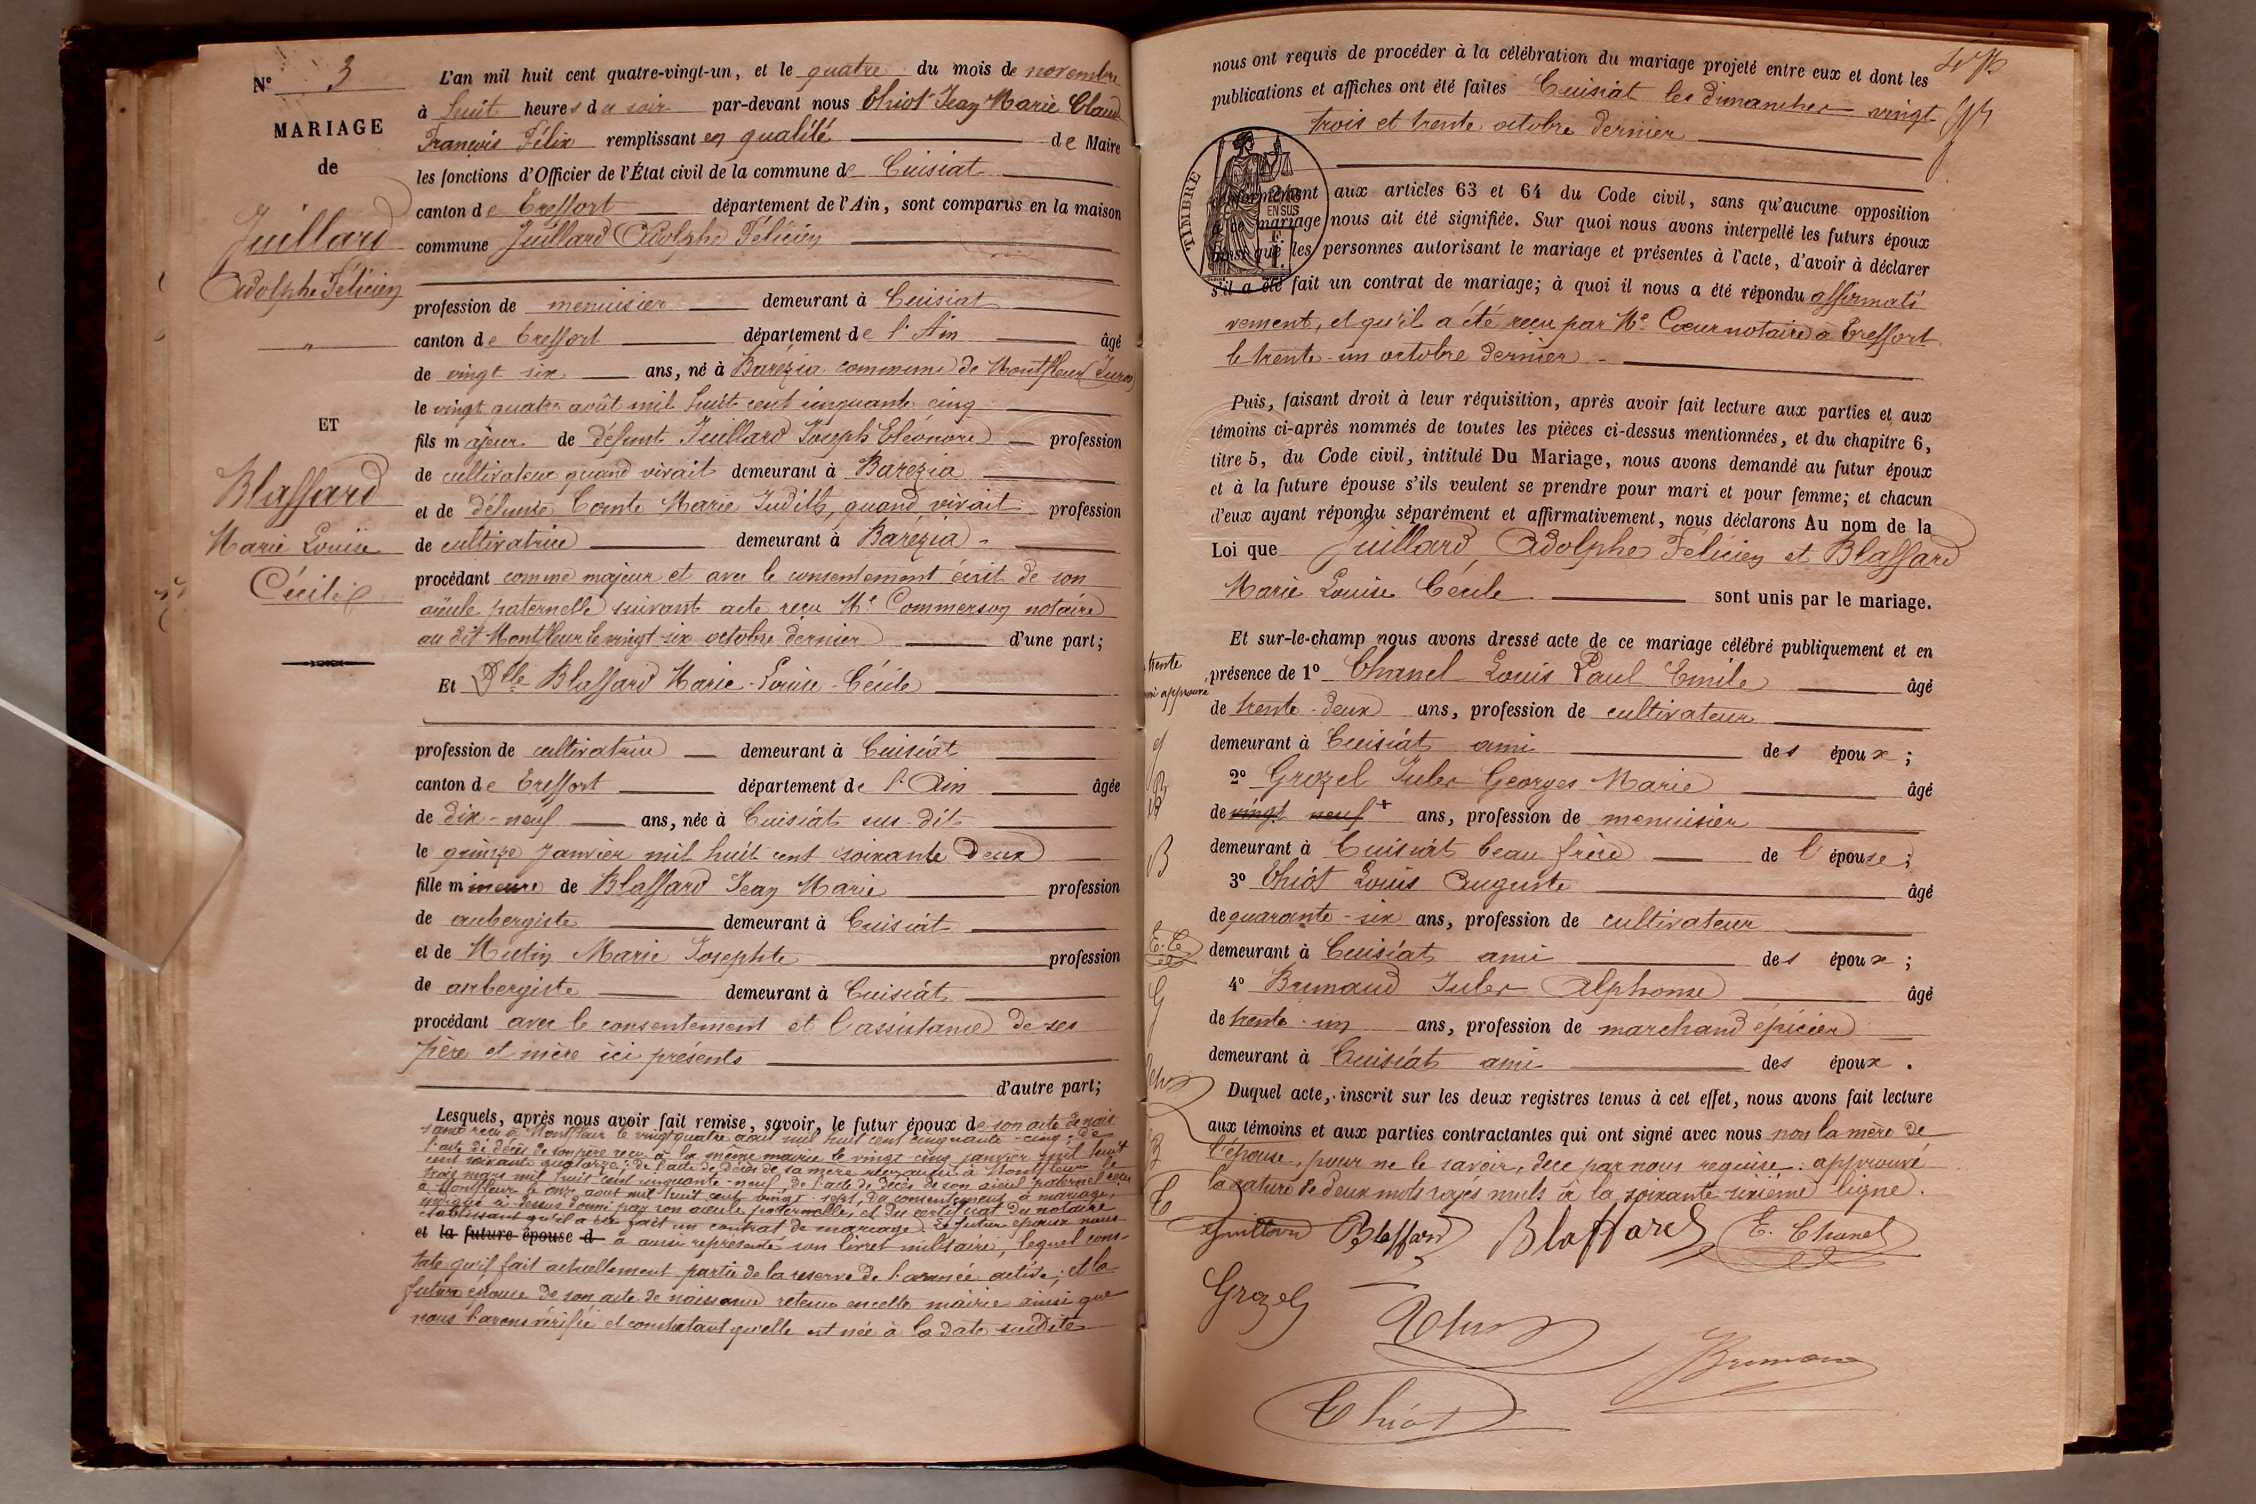 N° 3
MARIAGE
de
Juillard
Adolphe Félicien
"
ET
Blaffard
Marie Louise
Cécile
L'an mil huit cent quatre-vingt-un, et le quatre du mois de novembre
à huit heures du soir par-devant nous Thiot Jean Marie Claude
François Félix remplissant en qualité de Maire
les fonctions d'Officier de l'État civil de la commune de Cuisiat
canton de Treffort département de l'Ain, sont comparus en la maison
commune Juillard Adolphe Félicien
profession de menuisier demeurant à Cuisiat
canton de Treffort département de l'Ain âgé
de vingt six ans, né à Barézia commune de Montfleur (Jura)
le vingt quatre août mil huit cent cinquante cinq
fils majeur de défunt Juillard Joseph Eléonore profession
de cultivateur quand vivait demeurant à Barézia
et de défunte Comte Marie Judith, quand vivait profession
de cultivatrice demeurant à Barézia
procédant comme majeur et avec le consentement écrit de son
aïeule paternelle suivant acte reçu Me Commerson notaire
au dit Montfleur le vingt-six octobre dernier d'une part;
Et Dlle Blaffard Marie-Louise-Cécile
profession de cultivatrice demeurant à Cuisiat
canton de Treffort département de l'Ain âgée
de dix-neuf ans, née à Cuisiat sus-dit
le quinze janvier mil huit cent soixante deux
fille mineure de Blaffard Jean Marie profession
de aubergiste demeurant à Cuisiat
et de Mutin Marie Josephte profession
de aubergiste demeurant à Cuisiat
procédant avec le consentement et l'assistance de ses
père et mère ici présents
d'autre part;
Lesquels, après nous avoir fait remise, savoir, le futur époux de son acte de nais
sance reçu à Montfleur le vingt quatre août mil huit cent cinquante-cinq; de
l'acte de décès de son père reçu à la même mairie le vingt cinq janvier mil huit
cent soixante quatorze; de l'acte de décès de sa mère reçu aussi à Montfleur le
trois mars mil huit cent cinquante-neuf, de l'acte de décès de son aïeul paternel reçu
à Montfleur le onze août mil huit cent vingt-sept, du consentement à mariage,
ci-dessus donné par son aïeule paternelle, et du certificat du notaire
établissant qu'il a été fait un contrat de mariage. Le futur époux nous
et la future épouse d a aussi représenté son livret militaire, lequel cons-
tate qu'il fait actuellement partie de la réserve de l'armée active; et la
future épouse de son acte de naissance retenu en cette mairie ainsi que
nous l'avons vérifié et constatant qu'elle est née à la date susdite
nous ont requis de procéder à la célébration du mariage projeté entre eux et dont les
publications et affiches ont été faites Cuisiat les dimanches vingt
trois et trente octobre dernier
TIMBRE
2/10 EN SUS
conformément aux articles 63 et 64 du Code civil, sans qu'aucune opposition
à ce mariage nous ait été signifiée. Sur quoi nous avons interpellé les futurs époux
ainsi que les personnes autorisant le mariage et présentes à l'acte, d'avoir à déclarer
s'il a été fait un contrat de mariage; à quoi il nous a été répondu affirmati
vement, et qu'il a été reçu par Me Cœur notaire à Treffort
le trente-un octobre dernier
Puis, faisant droit à leur réquisition, après avoir fait lecture aux parties et aux
témoins ci-après nommés de toutes les pièces ci-dessus mentionnées, et du chapitre 6,
titre 5, du Code civil, intitulé Du Mariage, nous avons demandé au futur époux
et à la future épouse s'ils veulent se prendre pour mari et pour femme; et chacun
d'eux ayant répondu séparément et affirmativement, nous déclarons Au nom de la
Loi que Juillard Adolphe Félicien et Blaffard
Marie Louise Cécile sont unis par le mariage.
Et sur-le-champ nous avons dressé acte de ce mariage célébré publiquement et en
présence de 1° Chanel Louis Paul Emile âgé
de trente-deux ans, profession de cultivateur
demeurant à Cuisiat ami des époux;
2° Grozel Jules Georges Marie âgé
de vingt neuf + ans, profession de menuisier
demeurant à Cuisiat beau frère de l'épouse;
3° Thiot Louis Auguste âgé
de quarante-six ans, profession de cultivateur
demeurant à Cuisiat ami des époux;
4° Brunaud Jules Alphonse âgé
de trente-un ans, profession de marchand épicier
demeurant à Cuisiat ami des époux.
+ trente
E. C
Duquel acte, inscrit sur les deux registres tenus à cet effet, nous avons fait lecture
aux témoins et aux parties contractantes qui ont signé avec nous non la mère de
l'épouse, pour ne le savoir, de ce par nous requise. approuvé
la rature de deux mots rayés nuls à la soixante-sixième ligne.
Juillard Blaffard Blaffard E. Chanel
Grozel
Thiot
Brunaud